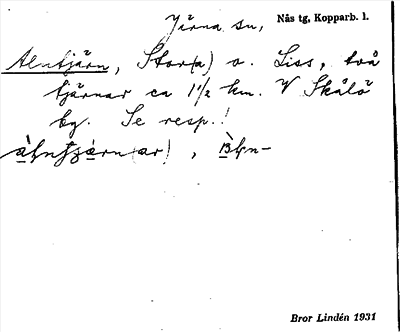 Järna sn, Nås tg, Kopparb. l.
Alntjärn, Stor(a) o. Liss, två
tjärnar ca 1 1/2 km. V Skålö
by. Se resp.!
Bror Lindén 1931